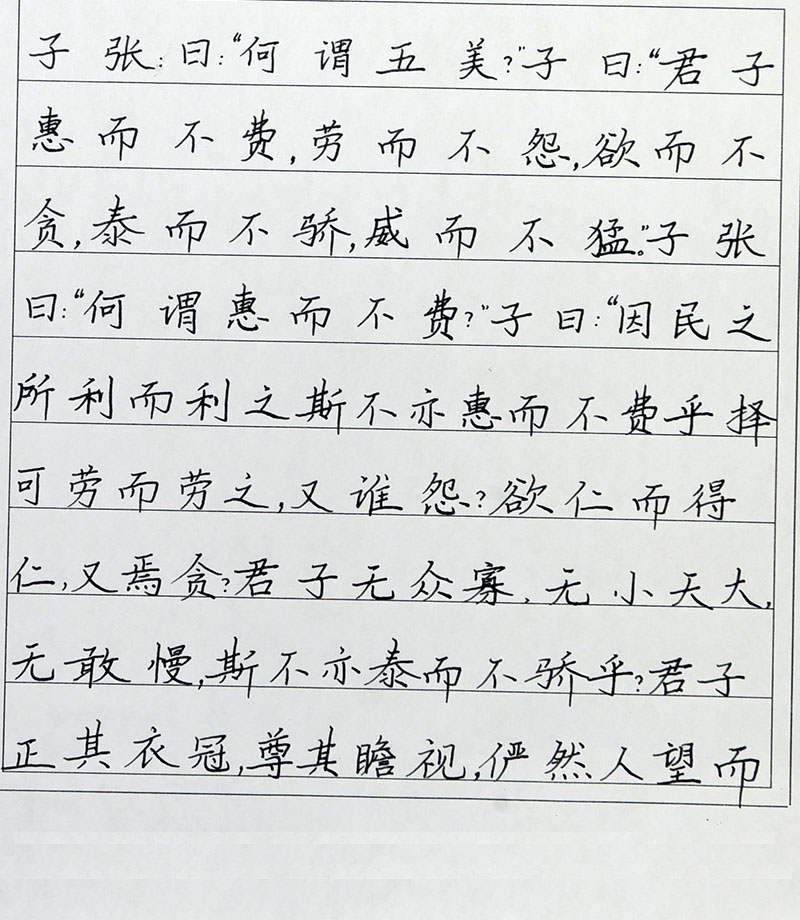 子张:曰:“何谓五美?”子曰:“君子
惠而不费,劳而不怨,欲而不
贪,泰而不骄,威而不猛。”子张
曰:“何谓惠而不费?”子曰:“因民之
所利而利之斯不亦惠而不费乎择
可劳而劳之,又谁怨?欲仁而得
仁,又焉贪?君子无众寡,无小天大,
无敢慢,斯不亦泰而不骄乎?君子
正其衣冠,尊其瞻视,俨然人望而